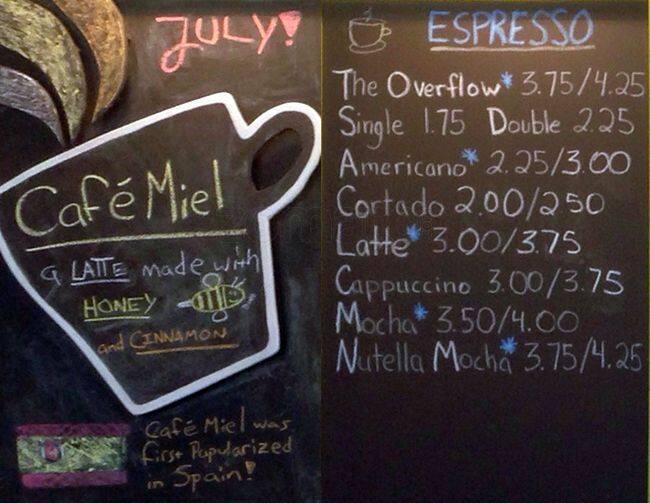 JULY!
Café Miel
a LATTE made with
HONEY
and CINNAMON
Café Miel was
first Popularized
in Spain!
ESPRESSO
The Overflow* 3.75/4.25
Single 1.75 Double 2.25
Americano* 2.25/3.00
Cortado 2.00/250
Latte* 3.00/3.75
Cappuccino 3.00/3.75
Mocha* 3.50/4.00
Nutella Mocha* 3.75/4.25